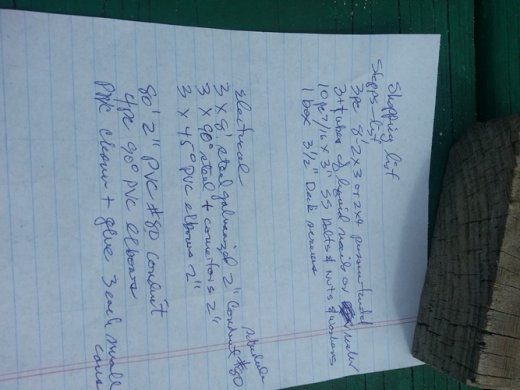 Shopping list
Stepps - list
3pc 8' 2x3 or 2x4 pressure treated
3 tubes of liquid nails or
10 pc 7/16 x 3" SS bolts & nuts & washers
1 box 3 1/2" Deck screws
Electrical
3 x 8' steel galvanized 2" Conduit #80
3 x 90° steel + conectors 2"
3 x 45° PVC elbows 2"
80' 2" PVC #80 conduit
4pc 90° PVC elbows
PVC cleaner + glue 3 each small